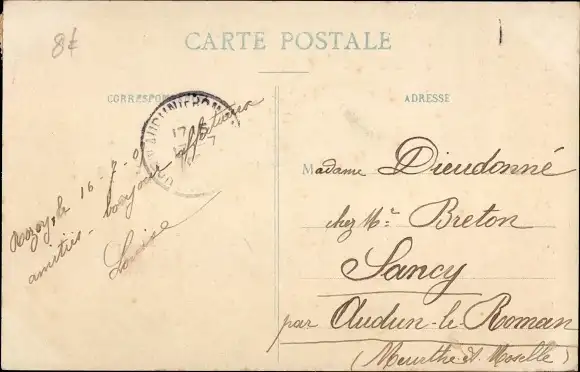 8€
CARTE POSTALE
CORRESPONDANCE
ADRESSE
AUDUN-LE-ROMAN
17
7
le 16-7-0
amitiés - bonjour affectueux
Louise
Madame Dieudonné
chez Mr Breton
Sancy
par Audun-le-Roman
(Meurthe et Moselle)